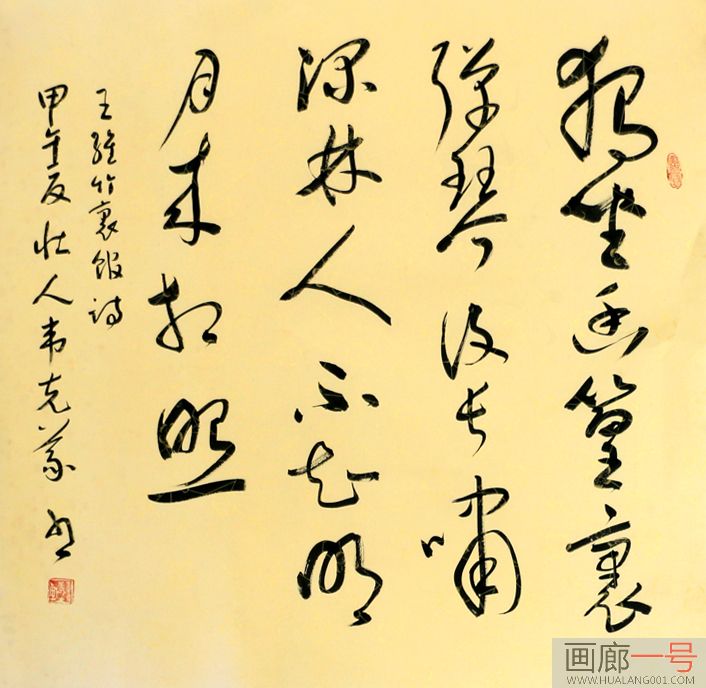 獨坐幽篁裏
彈琴復長嘯
深林人不知明
月来相照
王維竹裏館詩
甲午夏壮人韦克义书
画廊一号
WWW.HUALANG001.COM